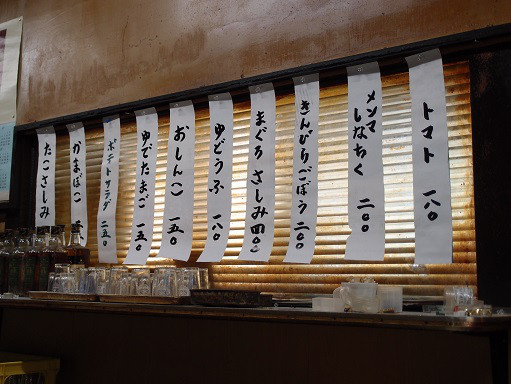 トマト 一八〇
メンマ
しなちく 二〇〇
きんぴらごぼう 二〇〇
まぐろさしみ 四〇〇
ゆどうふ 一八〇
おしんこ 一五〇
ゆでたまご 一五〇
ポテトサラダ 二五〇
かまぼこ
たこさしみ